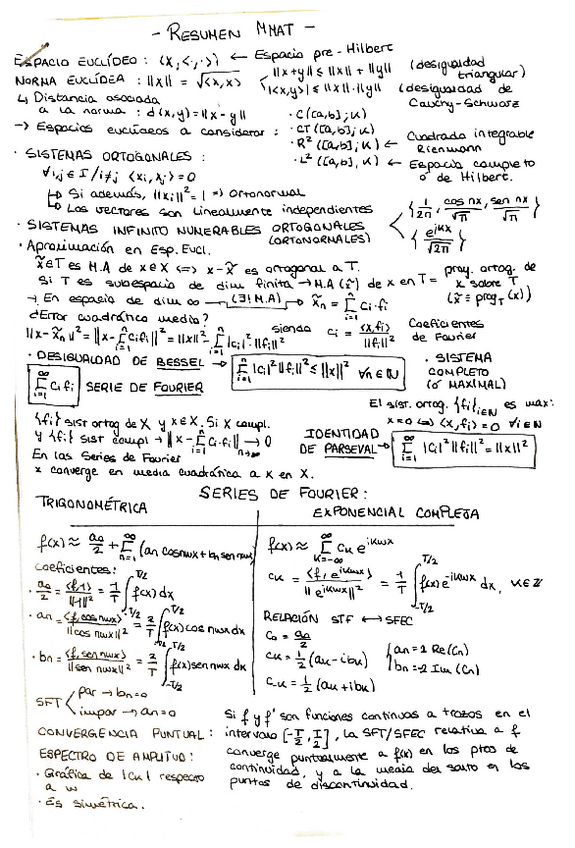 - RESUMEN MMAT -
ESPACIO EUCLÍDEO : (X,<·,·>) ← Espacio pre-Hilbert
NORMA EUCLÍDEA : ||x|| = √<x,x>
||x+y|| ≤ ||x|| + ||y|| (desigualdad triangular)
|<x,y>| ≤ ||x||·||y|| (desigualdad de Cauchy-Schwarz
↳ Distancia asociada
a la norma : d(x,y)=||x-y||
→ Espacios euclídeos a considerar :
· C([a,b];K)
· CT([a,b];K)
· R²([a,b];K) ← Cuadrado integrable Riemann
· L²([a,b],K) ← Espacio completo o de Hilbert.
· SISTEMAS ORTOGONALES :
∀i,j ∈ I / i≠j <xi,xj>=0
↳ Si además, ||xi||²=1 => Ortonormal
↳ Los vectores son linealmente independientes
· SISTEMAS INFINITO NUMERABLES ORTOGONALES
(ORTONORMALES)
{1/2π, cos nx/√π, sen nx/√π}
{e^jkx/√2π}
· Aproximación en Esp. Eucl.
x̃∈T es M.A de x∈X <=> x-x̃ es ortogonal a T.
Si T es subespacio de dim finita → M.A (x̃) de x en T = proy. ortog. de x sobre T
(x̃ ≡ proy_T (x))
→ En espacio de dim ∞ → (∃! M.A) → x̃n = Σ_{i=1}^{n} ci·fi
¿Error cuadrático medio?
||x-x̃n||² = ||x-Σ_{i=1}^{n} ci fi||² = ||x||² - Σ_{i=1}^{n} |ci|²·||fi||²
siendo ci = <x,fi>/||fi||² Coeficientes de Fourier
· DESIGUALDAD DE BESSEL → Σ_{i=1}^{n} |ci|² ||fi||² ≤ ||x||² ∀n∈ℕ
Σ_{i=1}^{∞} ci fi SERIE DE FOURIER
· SISTEMA
COMPLETO
(o MAXIMAL)
El sist. ortog. {fi}i∈ℕ es max:
x=0 <=> <x,fi>=0 ∀i∈ℕ
{fi} sist ortog de X y x∈X. Si X compl.
y {fi} sist compl → ||x-Σ_{i=1}^{n} ci·fi|| → 0 n→∞
En las Series de Fourier
x converge en media cuadrática a x en X.
IDENTIDAD
DE PARSEVAL → Σ_{i=1}^{∞} |ci|² ||fi||² = ||x||²
SERIES DE FOURIER :
TRIGONOMÉTRICA
f(x) ≈ a0/2 + Σ_{n=1}^{∞} (an cosnwx + bn sen nwx)
Coeficientes:
· a0/2 = <f,1>/||1||² = 1/T ∫_{-T/2}^{T/2} f(x) dx
· an = <f,cos nwx>/||cos nwx||² = 2/T ∫_{-T/2}^{T/2} f(x) cos nwx dx
· bn = <f,sen nwx>/||sen nwx||² = 2/T ∫_{-T/2}^{T/2} f(x) sen nwx dx
SFT
par → bn=0
impar → an=0
EXPONENCIAL COMPLEJA
f(x) ≈ Σ_{k=-∞}^{∞} ck e^ikwx
ck = <f,e^ikwx>/||e^ikwx||² = 1/T ∫_{-T/2}^{T/2} f(x) e^-ikwx dx, k∈ℤ
RELACIÓN STF ↔ SFEC
C0 = a0/2
ck = 1/2 (ak - ibk)
c-k = 1/2 (ak + ibk)
{an = 2 Re(Cn)
bn = -2 Im (Cn)
CONVERGENCIA PUNTUAL : Si f y f' son funciones continuas a trozos en el
intervalo [-T/2, T/2], la SFT/SFEC relativa a f
converge puntualmente a f(x) en los ptos de
continuidad, y a la media del salto en los
puntos de discontinuidad.
ESPECTRO DE AMPLITUD :
· Gráfica de |Cn| respecto
a w
· Es simétrica.